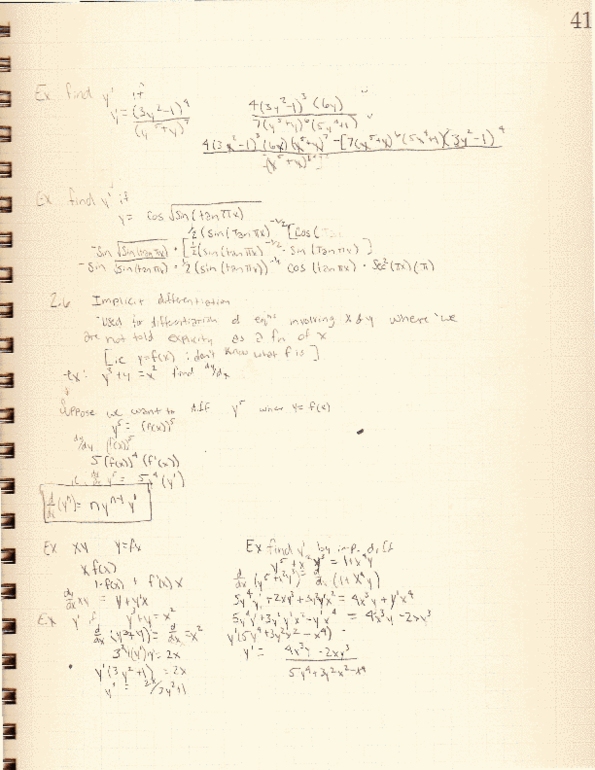 41
Ex find y' if
y = (3y²-1)⁴ / (y⁵+y)⁷
4(3y²-1)³(6y) / 7(y⁵+y)⁶(5y⁴+1)
Ex find y' if
y = cos √sin(tan πx)
½(sin(tan πx)^-1/2 [cos(
-sin √sin(tan πx) · [½(sin(tan πx)^-1/2 · sin(tan πx)]
-sin √sin(tan πx) · ½(sin(tan πx))^-½ cos(tan πx) · sec²(πx)(π)
2.6 Implicit differentiation
-Used for differentiation of eqns involving x & y where we
are not told explicity as a fn of x
[i.e. y=f(x) : don't know what f is]
ex: y³+y = x² find dy/dx
Suppose we want to diff y⁵ when y=f(x)
y⁵ = (f(x))⁵
dy/dy (f(x))⁵
5(f(x))⁴ (f'(x))
y⁵ = 5y⁴(y')
d/dx (yⁿ) = n yⁿ⁻¹ y'
Ex xy y=fx
x f(x)
1·f(x) + f'(x) x
dy/dx xy = y+y'x
Ex y' if y³+y = x²
d/dx (y³+y) = d/dx = x²
y'(3y²+1) = 2x
y' = 2x/3y²+1
Ex find y' by imp. diff
y⁵ + x²y³ = 1+x⁴y
d/dx (y⁵+x²y³) = d/dx (1+x⁴y)
5y⁴y' + 2xy³ + 3y²y'x² = 4x³y + y'x⁴
5y⁴y' + 3y²y'x² - y'x⁴ = 4x³y - 2xy³
y'(5y⁴+3y²x² - x⁴)
y' = 4x³y - 2xy³ / 5y⁴+3y²x²-x⁴